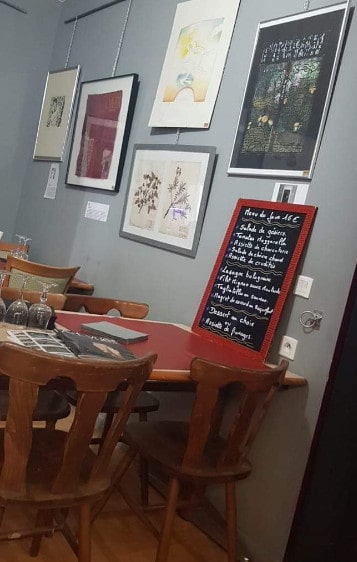 Menu du jour 16 €
Salade de gésiers
Tomates mozzarella
Assiette de charcuterie
Salade de chèvre chaud
Assiette de crudités
Lasagne bolognaise
Filet mignon sauce
Tagliatelle au saumon
Magret de canard au roquefort
Dessert au choix
ou
Assiette de fromages